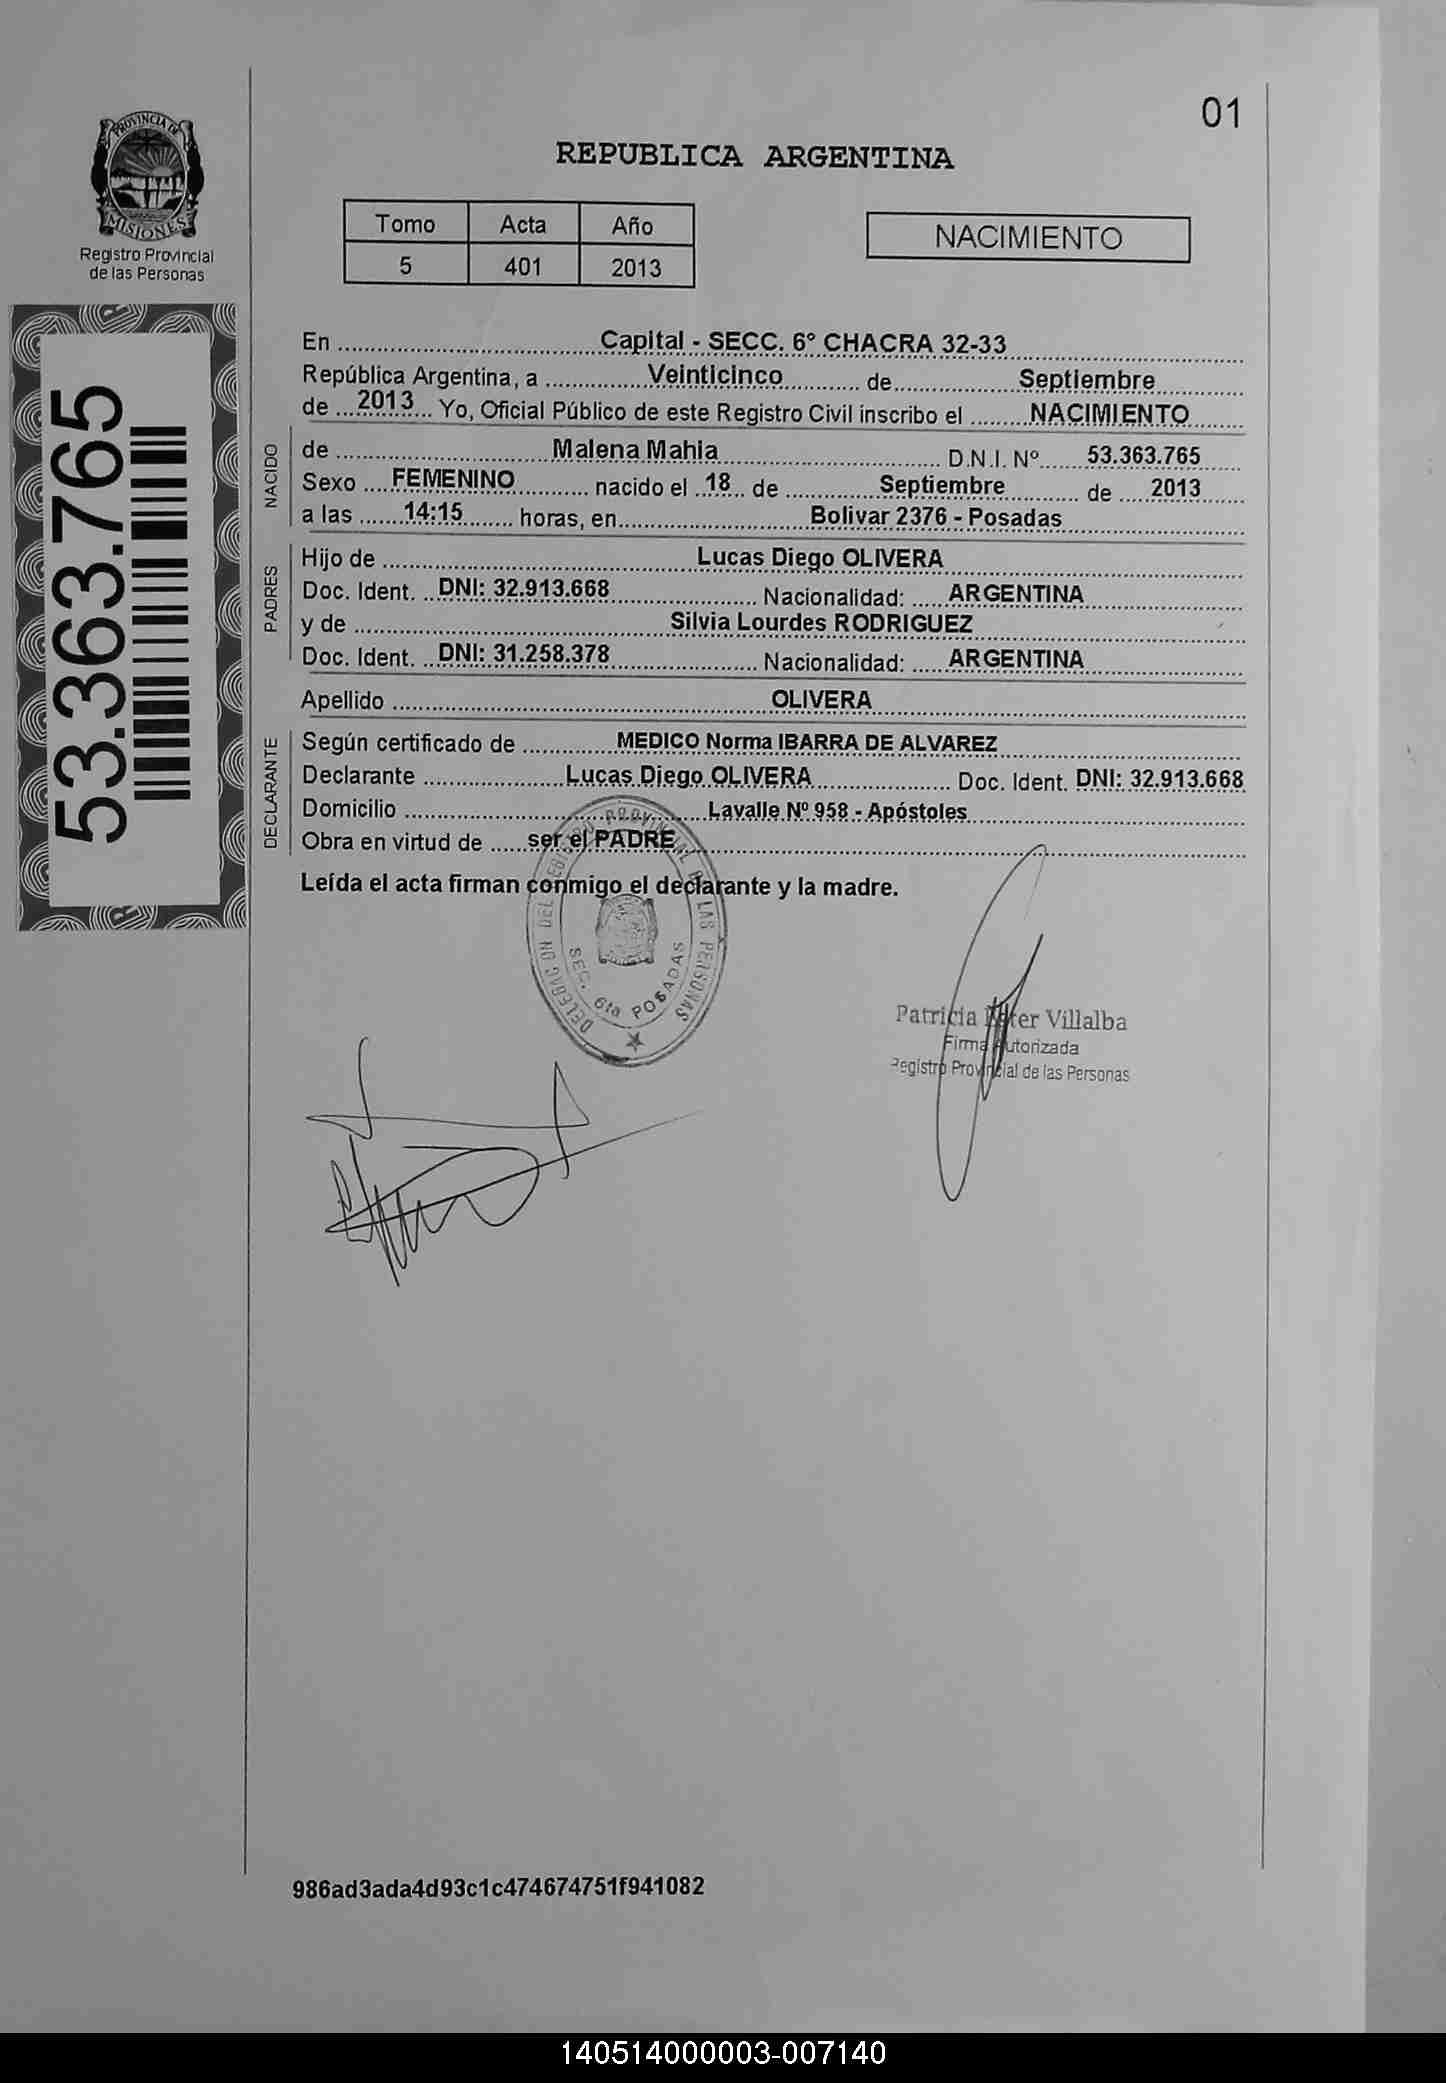 01
PROVINCIA DE
MISIONES
Registro Provincial
de las Personas
REPUBLICA ARGENTINA
Tomo Acta Año
5 401 2013
NACIMIENTO
53.363.765
En Capital - SECC. 6° CHACRA 32-33
República Argentina, a Veinticinco de Septiembre
de 2013 Yo, Oficial Público de este Registro Civil inscribo el NACIMIENTO
NACIDO
de Malena Mahia D.N.I. Nº 53.363.765
Sexo FEMENINO nacido el 18 de Septiembre de 2013
a las 14:15 horas, en Bolivar 2376 - Posadas
PADRES
Hijo de Lucas Diego OLIVERA
Doc. Ident. DNI: 32.913.668 Nacionalidad: ARGENTINA
y de Silvia Lourdes RODRIGUEZ
Doc. Ident. DNI: 31.258.378 Nacionalidad: ARGENTINA
Apellido OLIVERA
DECLARANTE
Según certificado de MEDICO Norma IBARRA DE ALVAREZ
Declarante Lucas Diego OLIVERA Doc. Ident. DNI: 32.913.668
Domicilio Lavalle Nº 958 - Apóstoles
Obra en virtud de ser el PADRE
Leída el acta firman conmigo el declarante y la madre.
DELEGACION DEL REGISTRO PROVINCIAL DE LAS PERSONAS
SEC. 6ta POSADAS
Patricia Villalba
Firma Autorizada
Registro Provincial de las Personas
986ad3ada4d93c1c474674751f941082
140514000003-007140